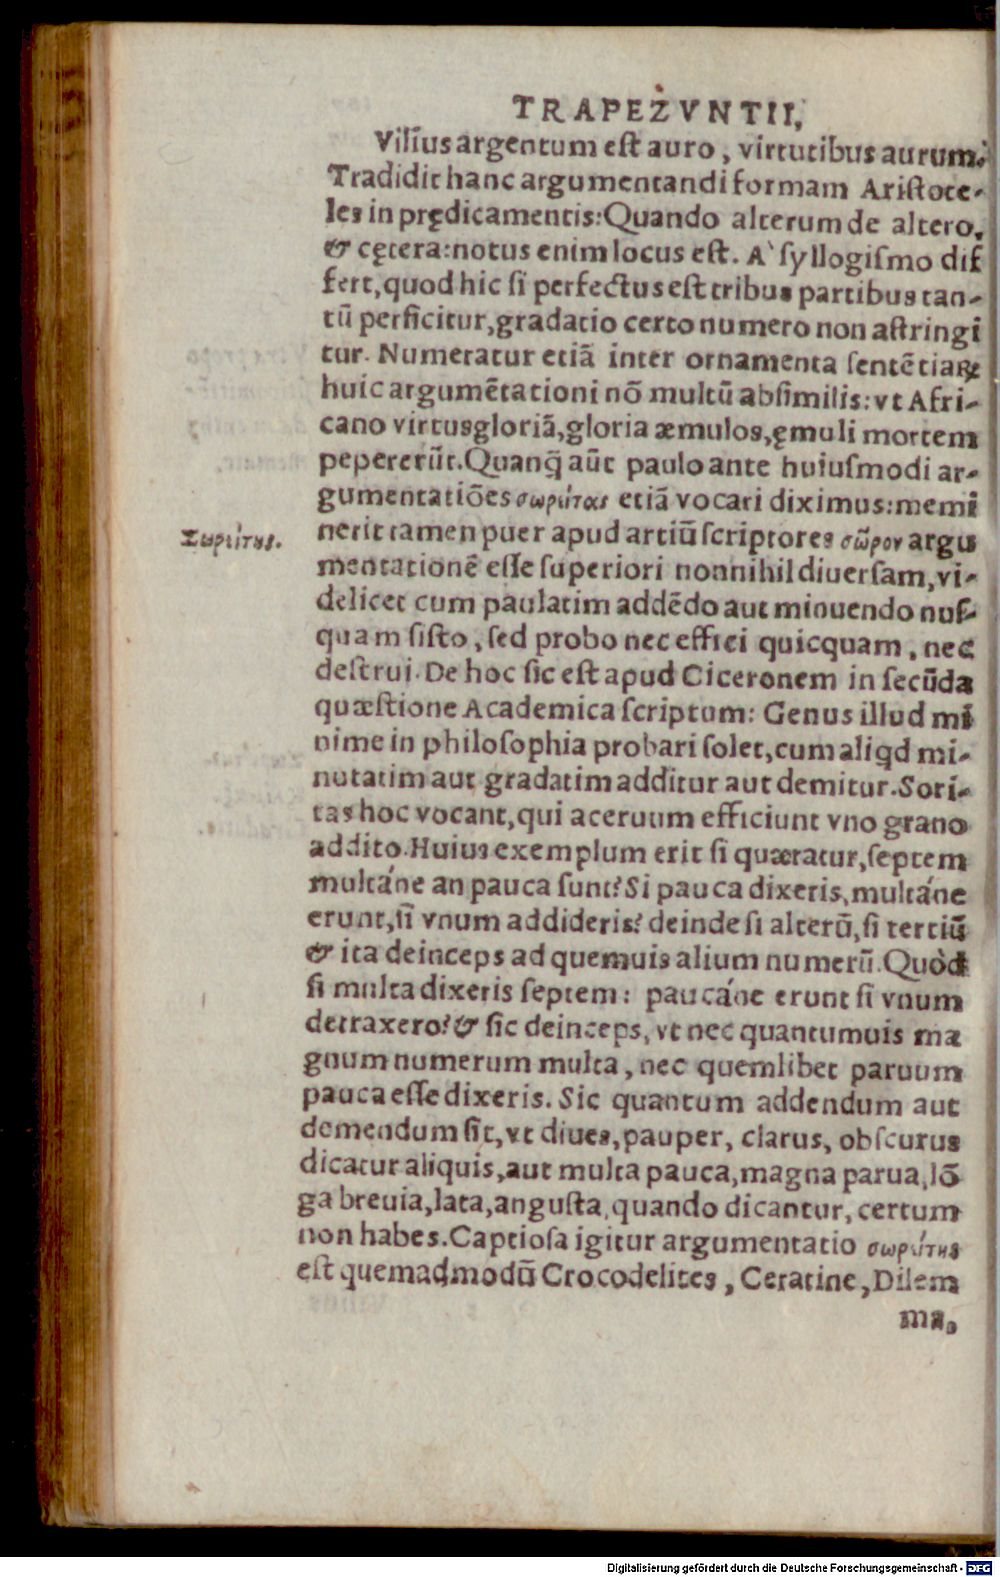 TRAPEZVNTII,
Viliꝰus argentum est auro, virtutibus aurum.
Tradidit hanc argumentandi formam Aristote-
les in prędicamentis: Quando alterum de altero,
& cętera: notus enim locus est. A` syllogismo dif
fert, quod hic si perfectus est tribus partibus tan-
tū perficitur, gradatio certo numero non astringi
tur. Numeratur etiā inter ornamenta sentētiaꝝ
huic argumētationi nō multū absimilis: vt Afri-
cano virtus gloriā, gloria æmulos, ęmuli mortem
pepererūt. Quanq̃ aūt paulo ante huiusmodi ar-
gumentatiōes σωρείτας etiā vocari diximus: memi
nerit tamen puer apud artiū scriptores σῶρον argu
Σωρείτης.
mentationē esse superiori nonnihil diuersam, vi-
delicet cum paulatim addēdo aut minuendo nus-
quam sisto, sed probo nec effici quicquam, nec
destrui. De hoc sic est apud Ciceronem in secūda
quæstione Academica scriptum: Genus illud mi
nime in philosophia probari solet, cum aliqd mi-
nutatim aut gradatim additur aut demitur. Sori-
tas hoc vocant, qui aceruum efficiunt vno grano
addito. Huius exemplum erit si quæratur, septem
multáne an pauca sunt? Si pauca dixeris, multáne
erunt, si vnum addideris? deinde si alterū, si tertiū
& ita deinceps ad quemuis alium numerū. Quòd
si multa dixeris septem: paucáne erunt si vnum
detraxero? & sic deinceps, vt nec quantumuis ma
gnum numerum multa, nec quemlibet paruum
pauca esse dixeris. Sic quantum addendum aut
demendum sit, vt diues, pauper, clarus, obscurus
dicatur aliquis, aut multa pauca, magna parua, lō
ga breuia, lata, angusta, quando dicantur, certum
non habes. Captiosa igitur argumentatio σωρείτης
est quemadmodū Crocodelites, Ceratine, Dilem
ma,
Digitalisierung gefördert durch die Deutsche Forschungsgemeinschaft - DFG